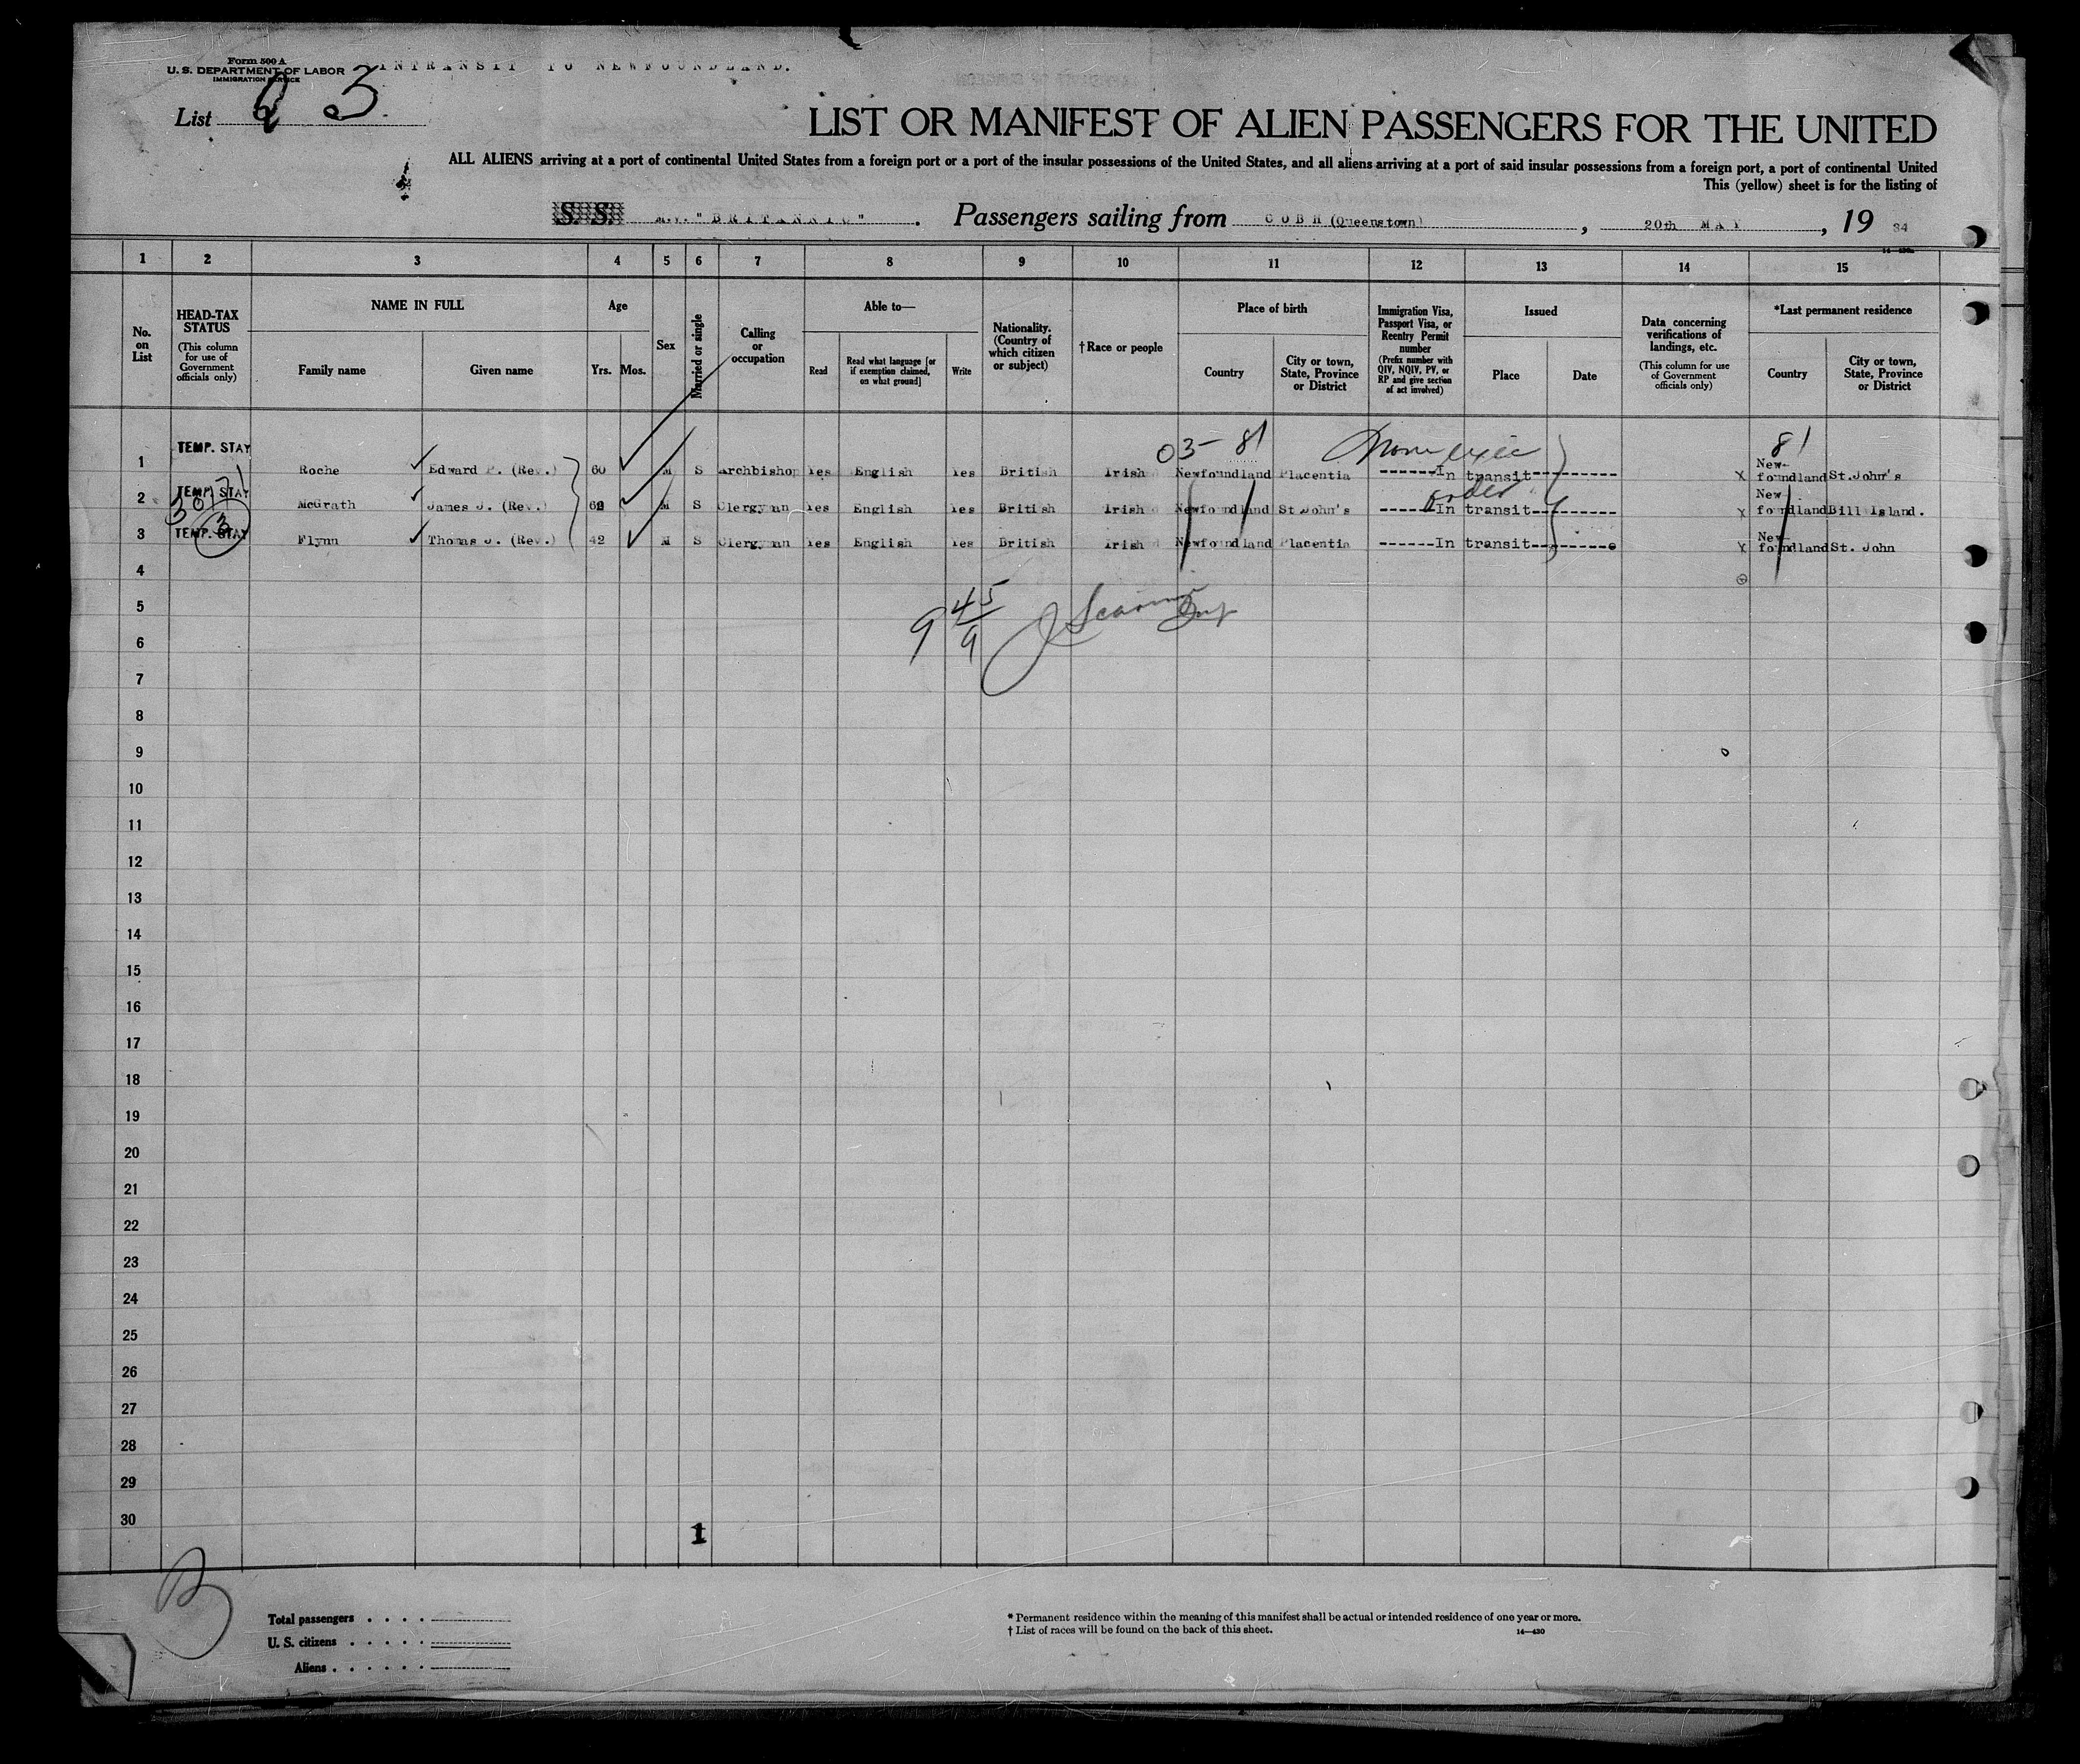 Form 500 A
U. S. DEPARTMENT OF LABOR
IMMIGRATION SERVICE
INTRANSIT TO NEWFOUNDLAND.
List 3
LIST OR MANIFEST OF ALIEN PASSENGERS FOR THE UNITED
ALL ALIENS arriving at a port of continental United States from a foreign port or a port of the insular possessions of the United States, and all aliens arriving at a port of said insular possessions from a foreign port, a port of continental United
This (yellow) sheet is for the listing of
S. S. M.V. "BRITANNIC" . Passengers sailing from COBH (Queenstown) , 20th MAY , 19 34
1 2 3 4 5 6 7 8 9 10 11 12 13 14 15
No. on List
HEAD-TAX STATUS (This column for use of Government officials only)
NAME IN FULL
Family name Given name
Age
Yrs. Mos.
Sex
Married or single
Calling or occupation
Able to—
Read Read what language [or if exemption claimed, on what ground] Write
Nationality. (Country of which citizen or subject)
†Race or people
Place of birth
Country City or town, State, Province or District
Immigration Visa, Passport Visa, or Reentry Permit number (Prefix number with QIV, NQIV, PV, or RP and give section of act involved)
Issued
Place Date
Data concerning verifications of landings, etc. (This column for use of Government officials only)
*Last permanent residence
Country City or town, State, Province or District
03- 81 81
1 TEMP. STAY Roche Edward P. (Rev.) 60 M S Archbishop Yes English Yes British Irish Newfoundland Placentia ------In transit--------- x New-foundland St.John's
order
2 TEMP. STAY McGrath James J. (Rev.) M S Clergyman Yes English Yes British Irish Newfoundland St John's ------In transit--------- x New foundland Bill Island.
3 TEMP. STAY Flynn Thomas J. (Rev.) 42 M S Clergyman Yes English Yes British Irish Newfoundland Placentia ------In transit--------- x New foundland St. John
3
4
5
9 45/9
6
7
8
9
10
11
12
13
14
15
16
17
18
19
20
21
22
23
24
25
26
27
28
29
30
1
B
Total passengers . . . .
U. S. citizens . . . . .
Aliens . . . . . .
* Permanent residence within the meaning of this manifest shall be actual or intended residence of one year or more.
† List of races will be found on the back of this sheet.
14—430